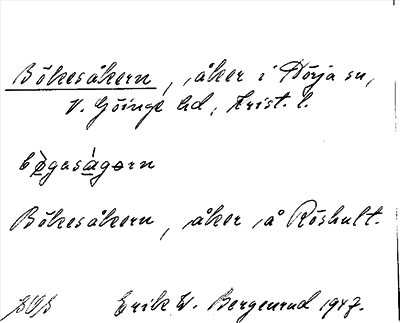 Bökesåkern, åker i Norja sn,
V. Göinge hd, Krist. l.
bøgasàgərn
Bökesåkern, åker å Röshult.
Erik W. Bergenrud 1947.